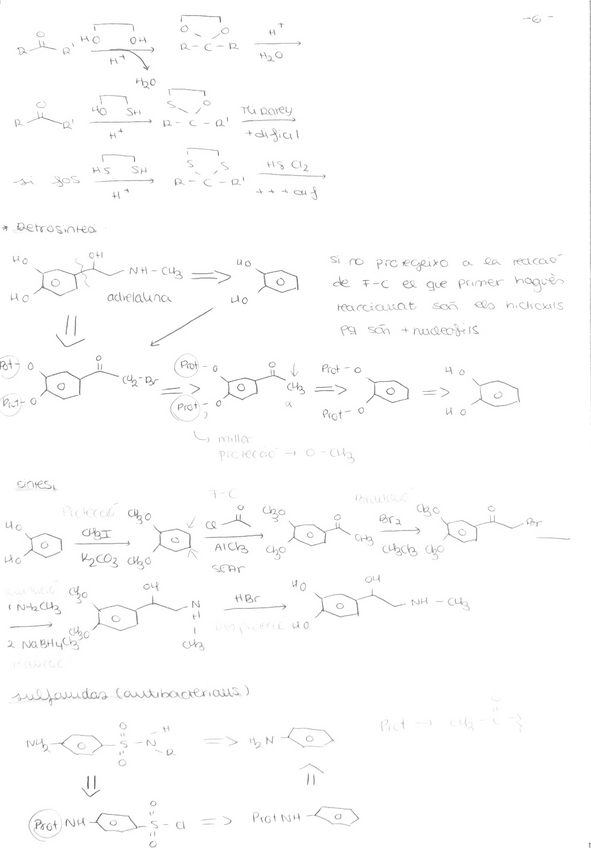 -6-
HO OH H+
R-C-R H+
H+ H2O
H2O
HO SH
R-C-R' Ni Raney
H+ +difícil
HS SH HgCl2
R-C-R'
H+ +++
* Retrosíntesi
OH
HO NH-CH3
HO
adrenalina
Si no protegeixo a la reacció
de F-C el que primer hagués
reaccionat són els hidroxils
pq són + nucleòfils
Prot-O CH2-Br
Prot-O CH3
α
Prot-O
HO
millor
protecció → O-CH3
síntesi
Protecció F-C
HO CH3I CH3O Cl CH3O CH3 Br2 CH3O Br
HO K2CO3 CH3O AlCl3 CH3O CH3O
SEAr
1. NH2CH3 CH3O OH HBr HO OH NH-CH3
2. NaBH4 CH3O N H CH3 HO
sulfamidas (antibacterians)
NH2 S N H R H2N
Prot NH S-Cl Prot NH
Prot → CH3-C